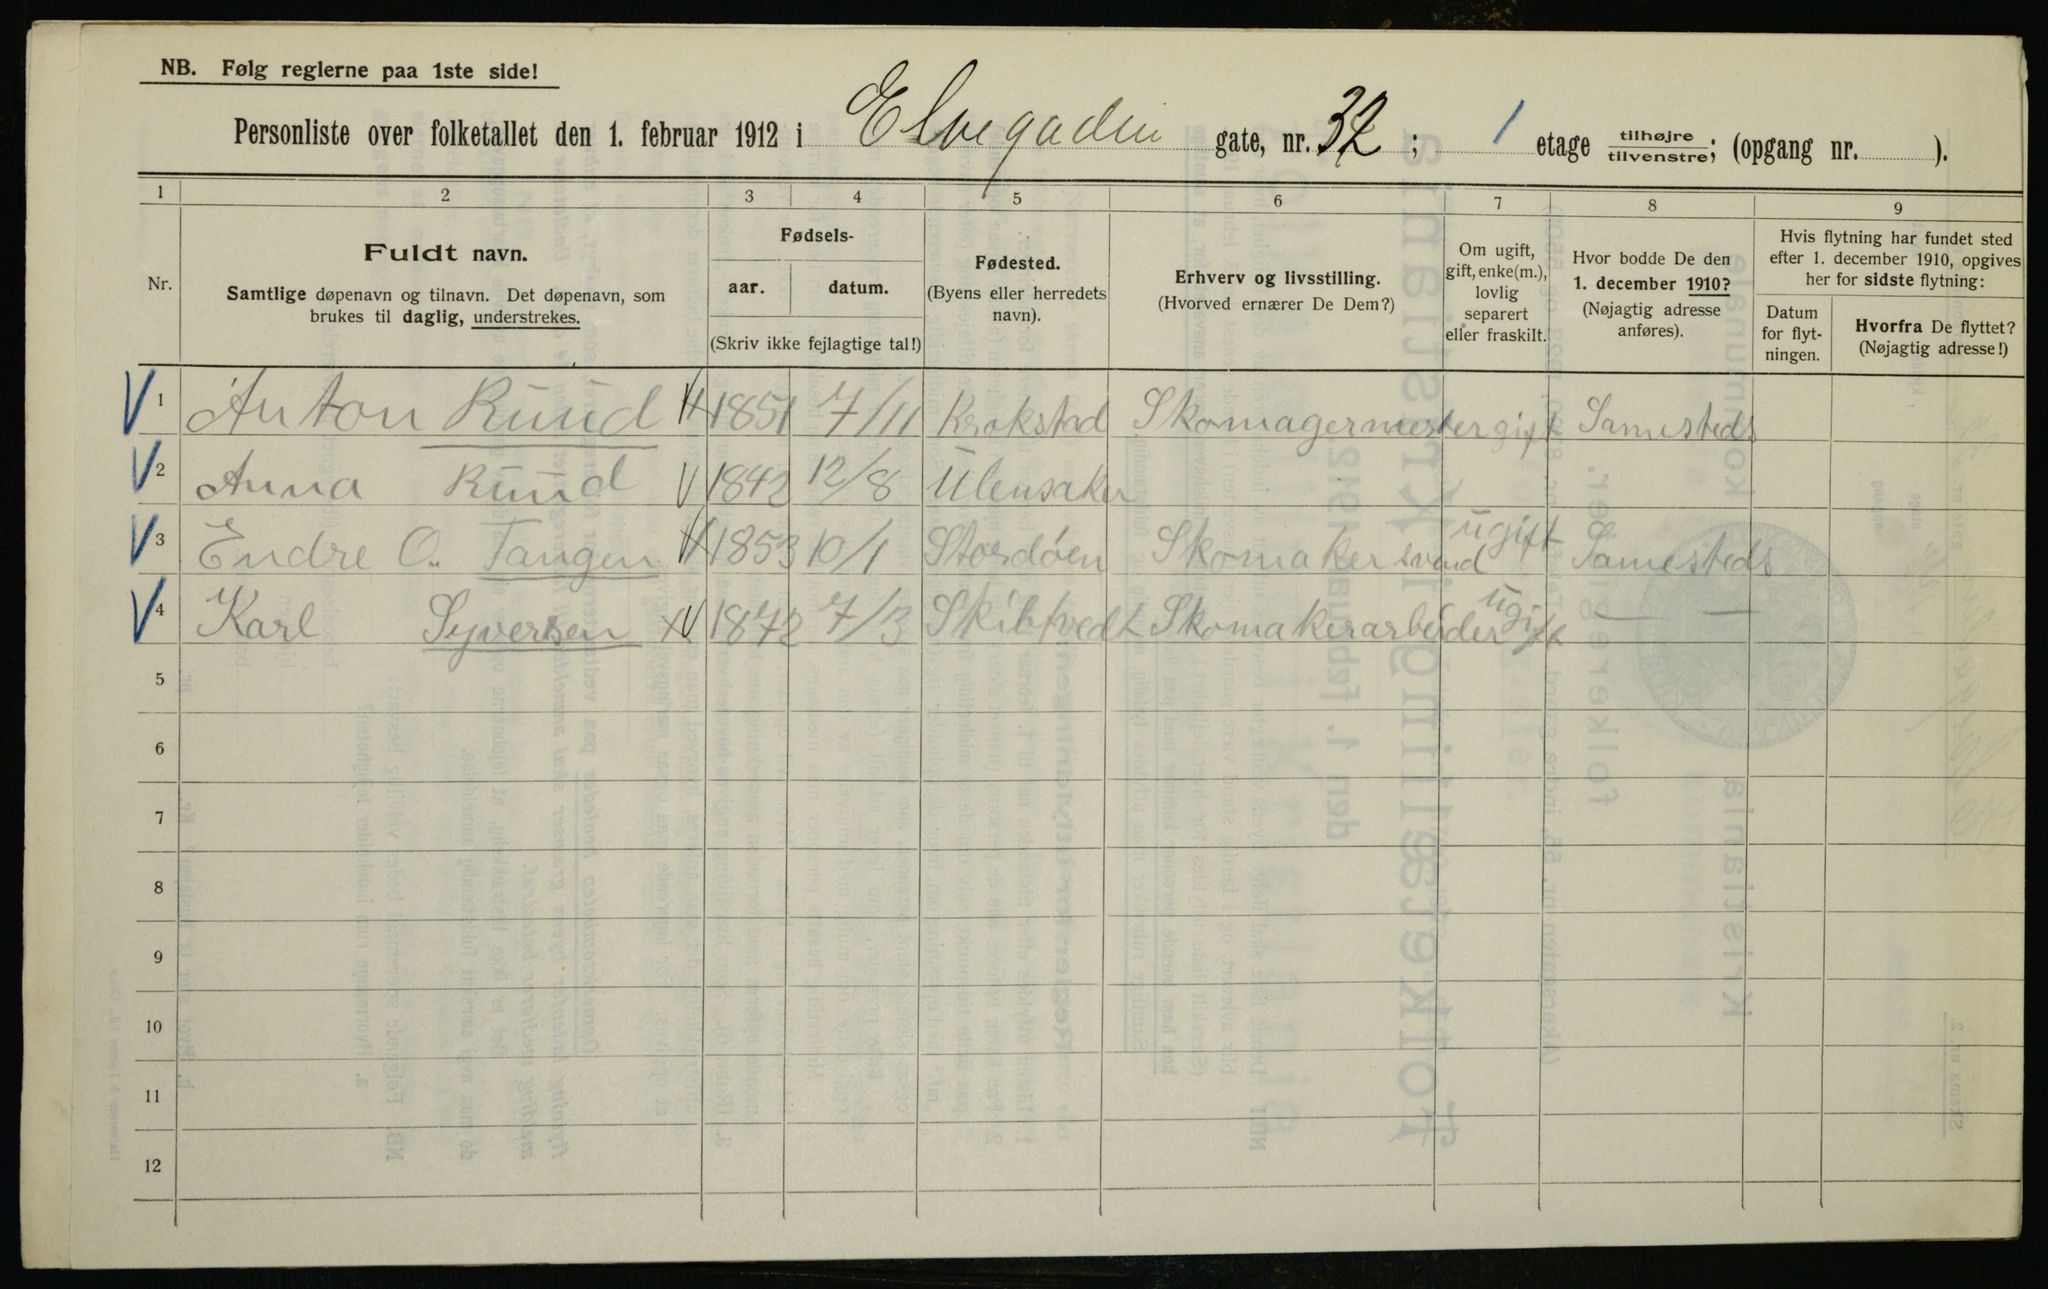 NB. Følg reglerne paa 1ste side!
Personliste over folketallet den 1. februar 1912 i Elvegaden gate, nr. 32; 1 etage tilhøjre/tilvenstre; (opgang nr. ).
1 2 3 4 5 6 7 8 9
Nr.
Fuldt navn.
Samtlige døpenavn og tilnavn. Det døpenavn, som
brukes til daglig, understrekes.
Fødsels-
aar. datum.
(Skriv ikke fejlagtige tal!)
Fødested.
(Byens eller herredets
navn).
Erhverv og livsstilling.
(Hvorved ernærer De Dem?)
Om ugift,
gift, enke(m.),
lovlig
separert
eller fraskilt.
Hvor bodde De den
1. december 1910?
(Nøjagtig adresse
anføres).
Hvis flytning har fundet sted
efter 1. december 1910, opgives
her for sidste flytning:
Datum
for flyt-
ningen.
Hvorfra De flyttet?
(Nøjagtig adresse!)
1 Anton Ruud 1851 7/11 Krokstad Skomagermester gift Samesteds
2 Anna Ruud 1842 12/8 Ulensaker
3 Endre O. Tangen 1853 10/1 Stordøen Skomakersvend ugift Samesteds
4 Karl Syversen 1872 7/3 Skibtvedt Skomakerarbeider ugift — —
5
6
7
8
9
10
11
12